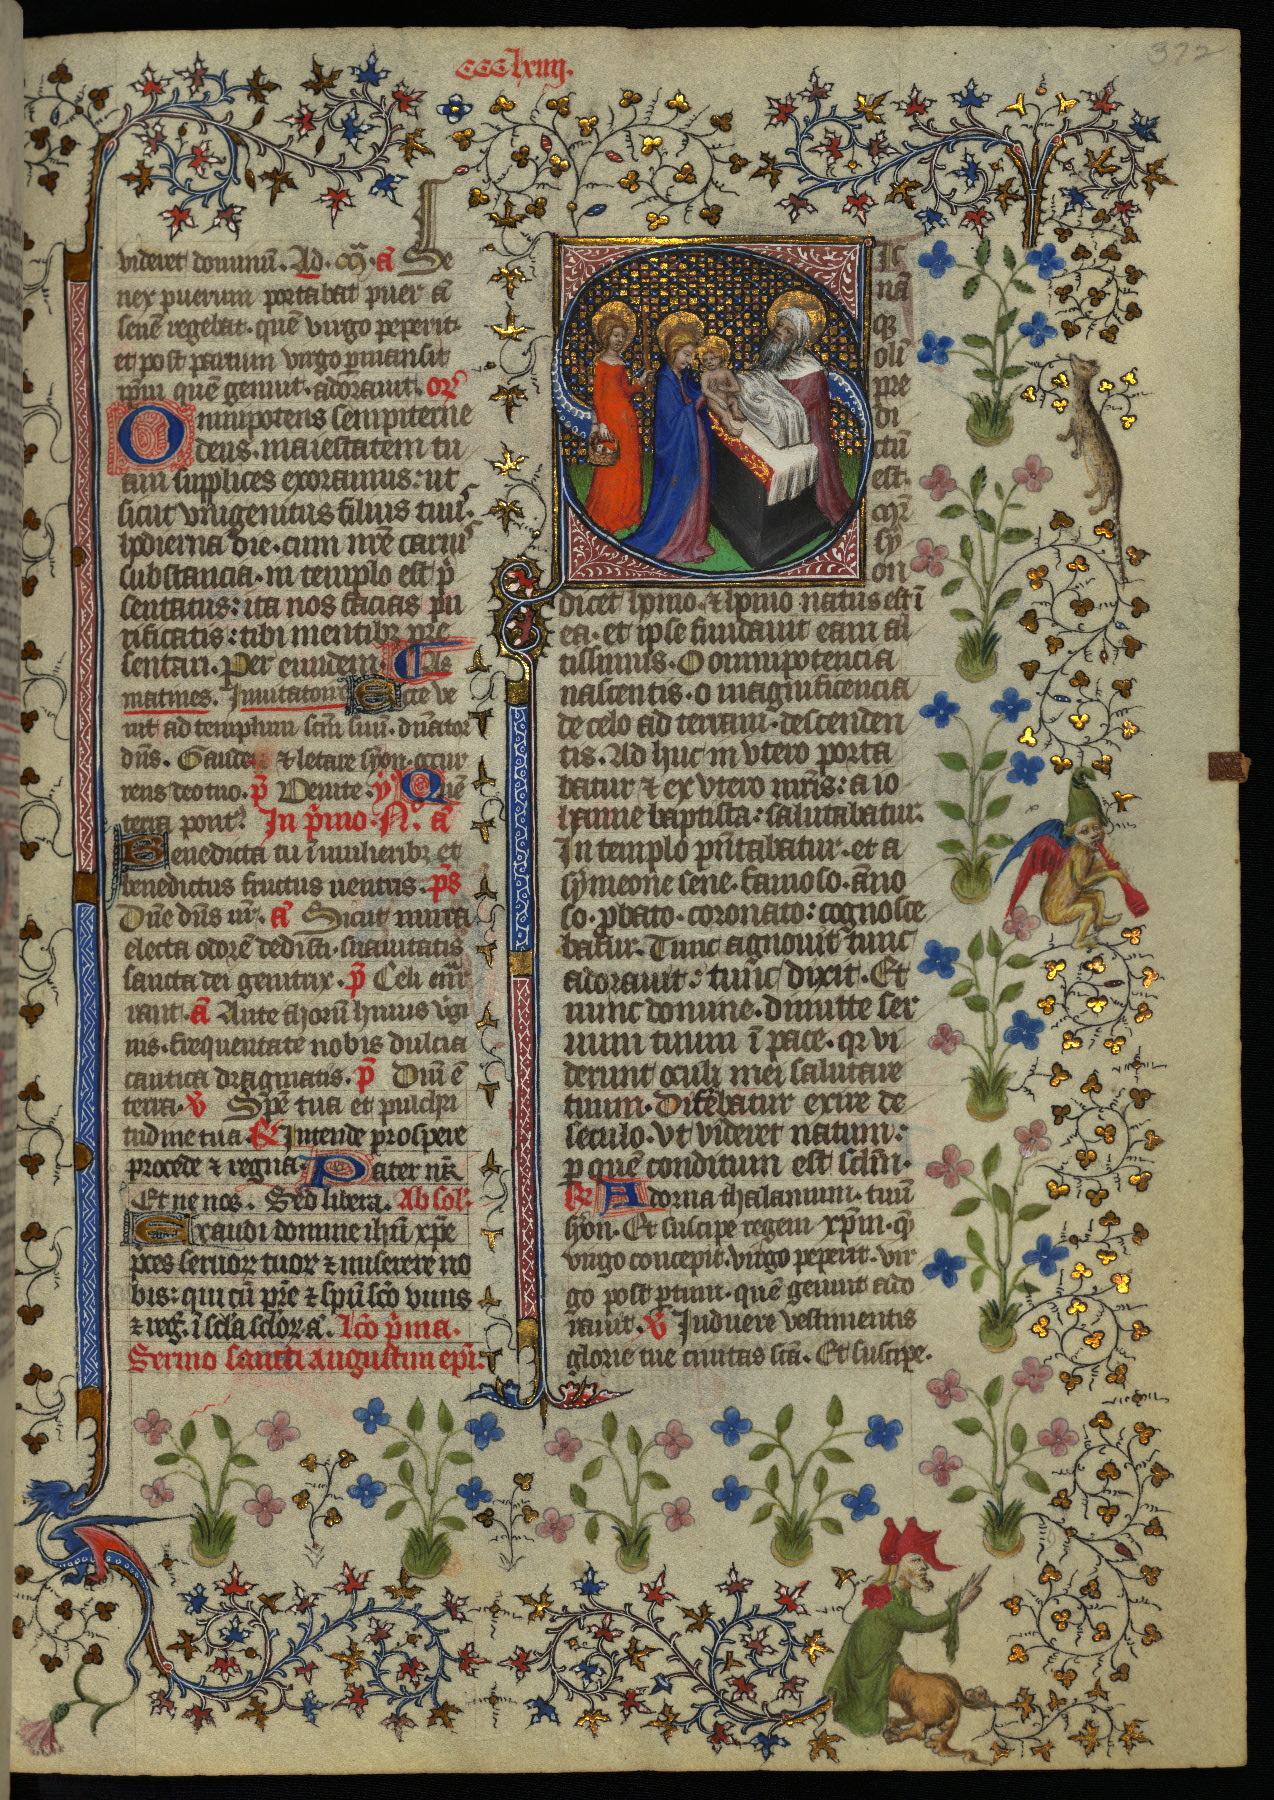 CCClxiiij.
372
videret dominū. Ad. m̄. a᷑ Se
nex puerum portabat puer a᷑
senē regebat. quē virgo peperit.
et post partum virgo p̄mansit
ip̄m quē genuit. adorauit. or̄
Omnipotens sempiterne
deus. maiestatem tu
am supplices exoramus: ut
sicut vnigenitus filius tuus.
hodierna die. cum nr̄e carnis
substancia. in templo est p̄
sentatus: ita nos facias pu
rificatis: tibi mentibꝫ pre
sentari. Per eundem. Ad
matines. Inuitatoriū Ecce ve
nit ad templum scm̄ suū. dn̄ator
dn̄s. Gaude & letare syon occur
rens deo tuo. p̄ Venite. y̾ Quē
terra pont. In p̄mo. N. a᷑
Benedicta tu ī mulieribꝫ et
benedictus fructus uentris. ps̄
Dn̄e dn̄s nr̄. a᷑ Sicut mirra
electa odorē dedisti. suauitatis
sancta dei genitrix. p̄ Celi enar
rant. a᷑ Ante thorū huius vīgi
nis. frequentate nobis dulcia
cantica dragmatis. p̄ Dn̄i ē
terra. v̄ Spē tua et pulchri
tudine tua. ℟ Intende prospere
procede & regna. Pater nr̄.
Et ne nos. Sed libera. Absol.
Exaudi domine ihū xp̄e
p̄ces seruoꝝ tuoꝝ & miserere no
bis: qui cū pr̄e & spū scō viuis
& reg̾. ī scl̄a scl̄oꝝ. a. Lc̄o p̄ma.
Sermo sancti augustini epī.
Ic
na
qꝫ
oli
pre
di
ctū
est.
m̄r
sy
on
dicet homo. & homo natus est ī
ea. et ipse fundauit eam al
tissimus. O omnipotencia
nascentis. o magnificencia
de celo ad terram. descenden
tis. Ad huc in vtero porta
batur & ex vtero mr̄is: a io
hanne baptista: salutabatur.
In templo pn̄tabatur. et a
symeone sene. famoso. anno
so. p̄bato. coronato: cognosce
batur. Tunc agnouit tunc
adorauit: tunc dixit. Et
nunc domine. dimitte ser
uum tuum ī pace. qꝛ vi
derunt oculi mei salutare
tuum. Differebatur exire de
seculo. vt videret natum:
ꝑ quē conditum est sclm̄.
℟ Adorna thalamum. tuū
syon. Et suscipe regem xp̄m. q̄
virgo concepit. virgo peperit. vir
go post ꝑtum. quē genuit ado
rauit. v̄ Induere vestimentis
glorie tue ciuitas scā. Et suscipe.